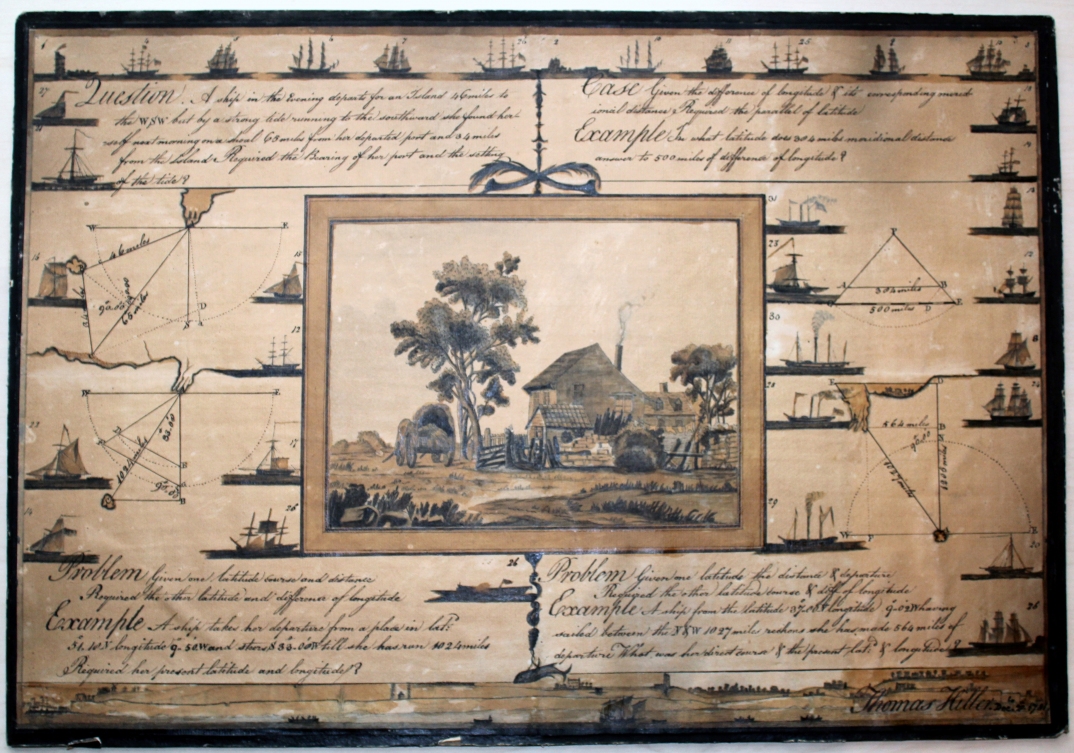 Question. A ship in the Evening departs for an Island 46 miles to
the WSW but by a strong tide running to the southward she found her
self next morning on a shoal 65 miles from her departed port and 34 miles
from the Island Required the Bearing of her port and the setting
of the tide?
Case Given the difference of longitude & its corresponding merid
ional distance Required the parallel of latitude
Example In what latitude does 304 miles meridional distance
answer to 500 miles of difference of longitude?
W
E
46 miles
65 miles
D
S
A
B
304 miles
500 miles
D
E
W
E
1024 miles
B
B
E
D
564 miles
1027 miles
W
P
E
Problem Given one latitude course and distance
Required the other latitude and difference of longitude
Example A ship takes her departure from a place in latd
51.10 N longitude 9.50 W and steers S 33.00 W till she has ran 1024 miles
Required her present latitude and longitude?
Problem Given one latitude the distance & departure
Required the other latitude course & diff of longitude
Example A ship from the latitude longitude 9.02 W having
sailed between the N & W 1027 miles reckons she has made 564 miles of
departure What was her direct course & the present latd & longitude?
Thomas Hiller